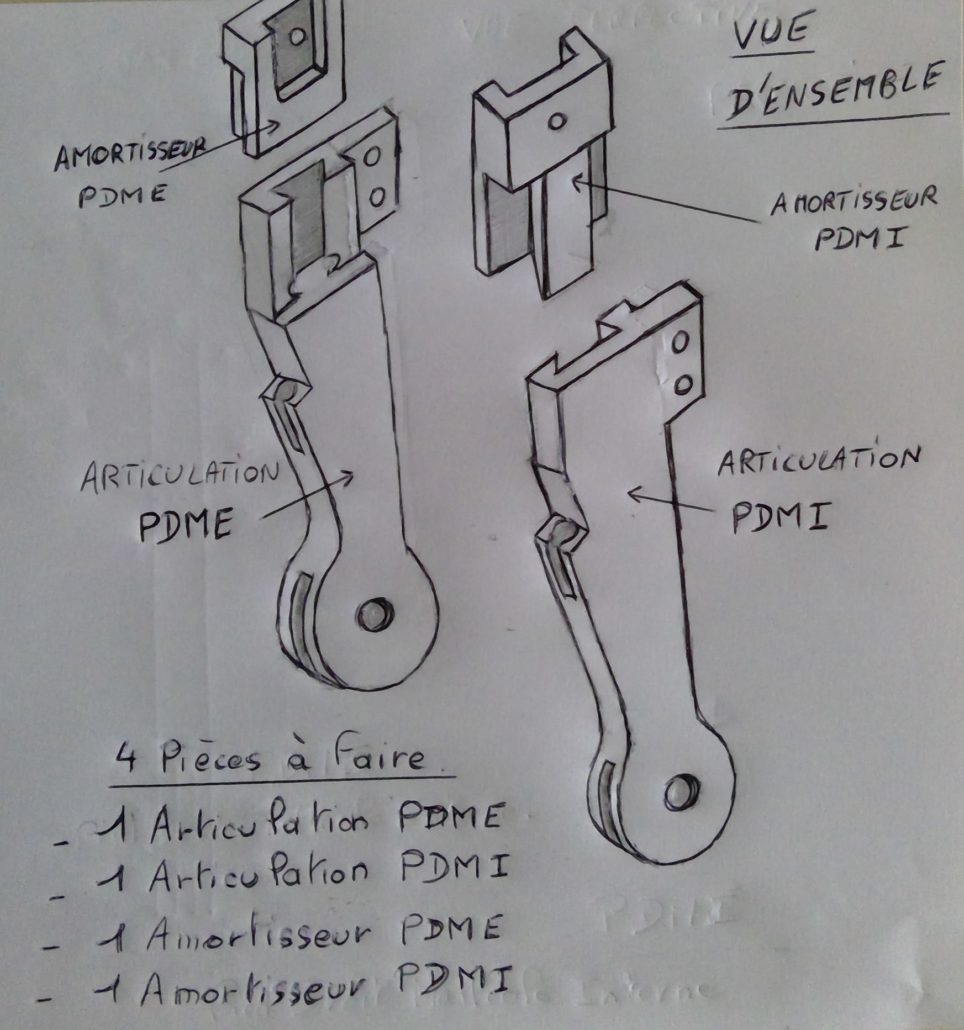 VUE
D'ENSEMBLE
AMORTISSEUR
PDME
AMORTISSEUR
PDMI
ARTICULATION
PDME
ARTICULATION
PDMI
4 Pièces à Faire.
- 1 Articulation PDME
- 1 Articulation PDMI
- 1 Amortisseur PDME
- 1 Amortisseur PDMI